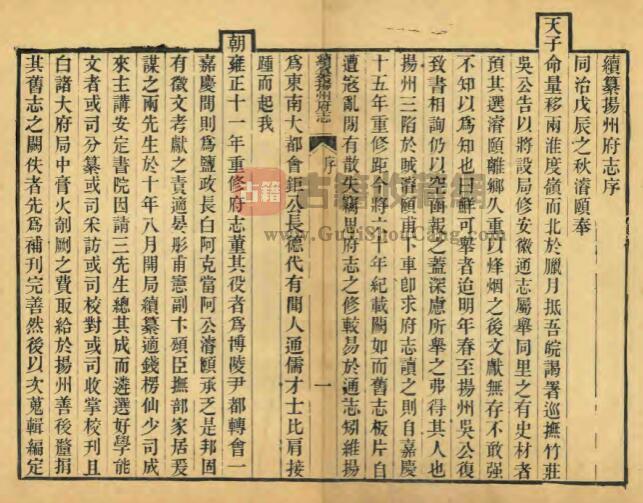 續纂揚州府志序
同治戊辰之秋濬頤奉
天子命量移兩淮度嶺而北於臘月抵吾皖謁署巡撫竹莊
吳公告以將設局修安徽通志屬舉同里之有史材者
預其選濬頤離鄉久重以烽烟之後文獻無存不敢強
不知以為知也曰鮮可舉者迨明年春至揚州吳公復
致書相詢仍以空函報之蓋深慮所舉之弗得其人也
揚州三陷於賊濬頤甫下車卽求府志讀之則自嘉慶
十五年重修距今將六十年紀載闕如而舊志板片自
遭寇亂閒有散失竊思府志之修較易於通志矧維揚
續纂揚州府志
序
一
為東南大都會鉅公長德代有聞人通儒才士比肩接
踵而起我
朝雍正十一年重修府志董其役者為博陵尹都轉會一
嘉慶間則為鹽政長白阿克當阿公濬頤承乏是邦固
有徵文考獻之責適晏彤甫憲副卞頌臣撫部家居爰
謀之兩先生於十年八月開局續纂適錢楞仙少司成
來主講安定書院因請三先生總其成而遴選好學能
文者或司分纂或司采訪或司校對或司收掌校刊且
白諸大府局中膏火剞劂之費取給於揚州善後釐捐
其舊志之闕佚者先為補刊完善然後以次蒐輯編定
古籍收藏网
www.GuJiShouCang.com